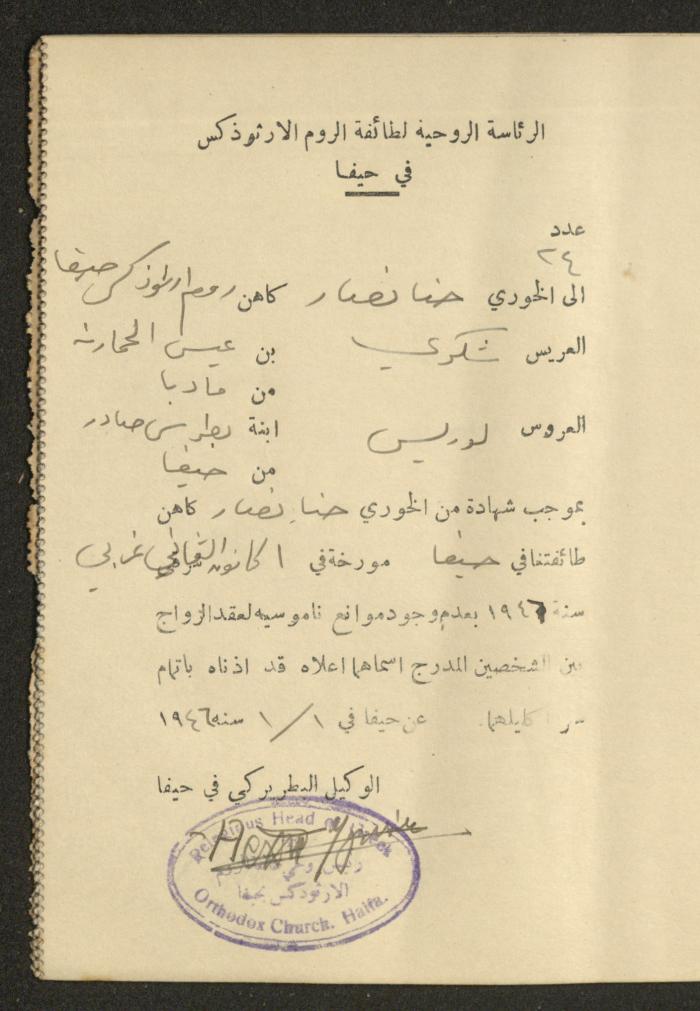 الرئاسة الروحية لطائفة الروم الارثوذكس
في حيفا
عدد
٢٤
الى الخوري حنا نصار كاهن روم ارثوذكس حيفا
العريس شكري بن عيسى الحمارنه
من مادبا
العروس لوريس ابنة بطرس صادر
من حيفا
بموجب شهادة من الخوري حنا نصار كاهن
طائفتنا في حيفا مورخة في ١ كانون الثاني غربي
سنة ١٩٤٦ بعدم وجود موانع ناموسيه لعقد الزواج
بين الشخصين المدرج اسماهما اعلاه قد اذناه باتمام
سر اكليلهما. عن حيفا في ١/١ سنه ١٩٤٦
الوكيل البطريركي في حيفا
Religious Head of Greek
رئيس روحي الروم
الارثوذكس بحيفا
Orthodox Church. Haifa.